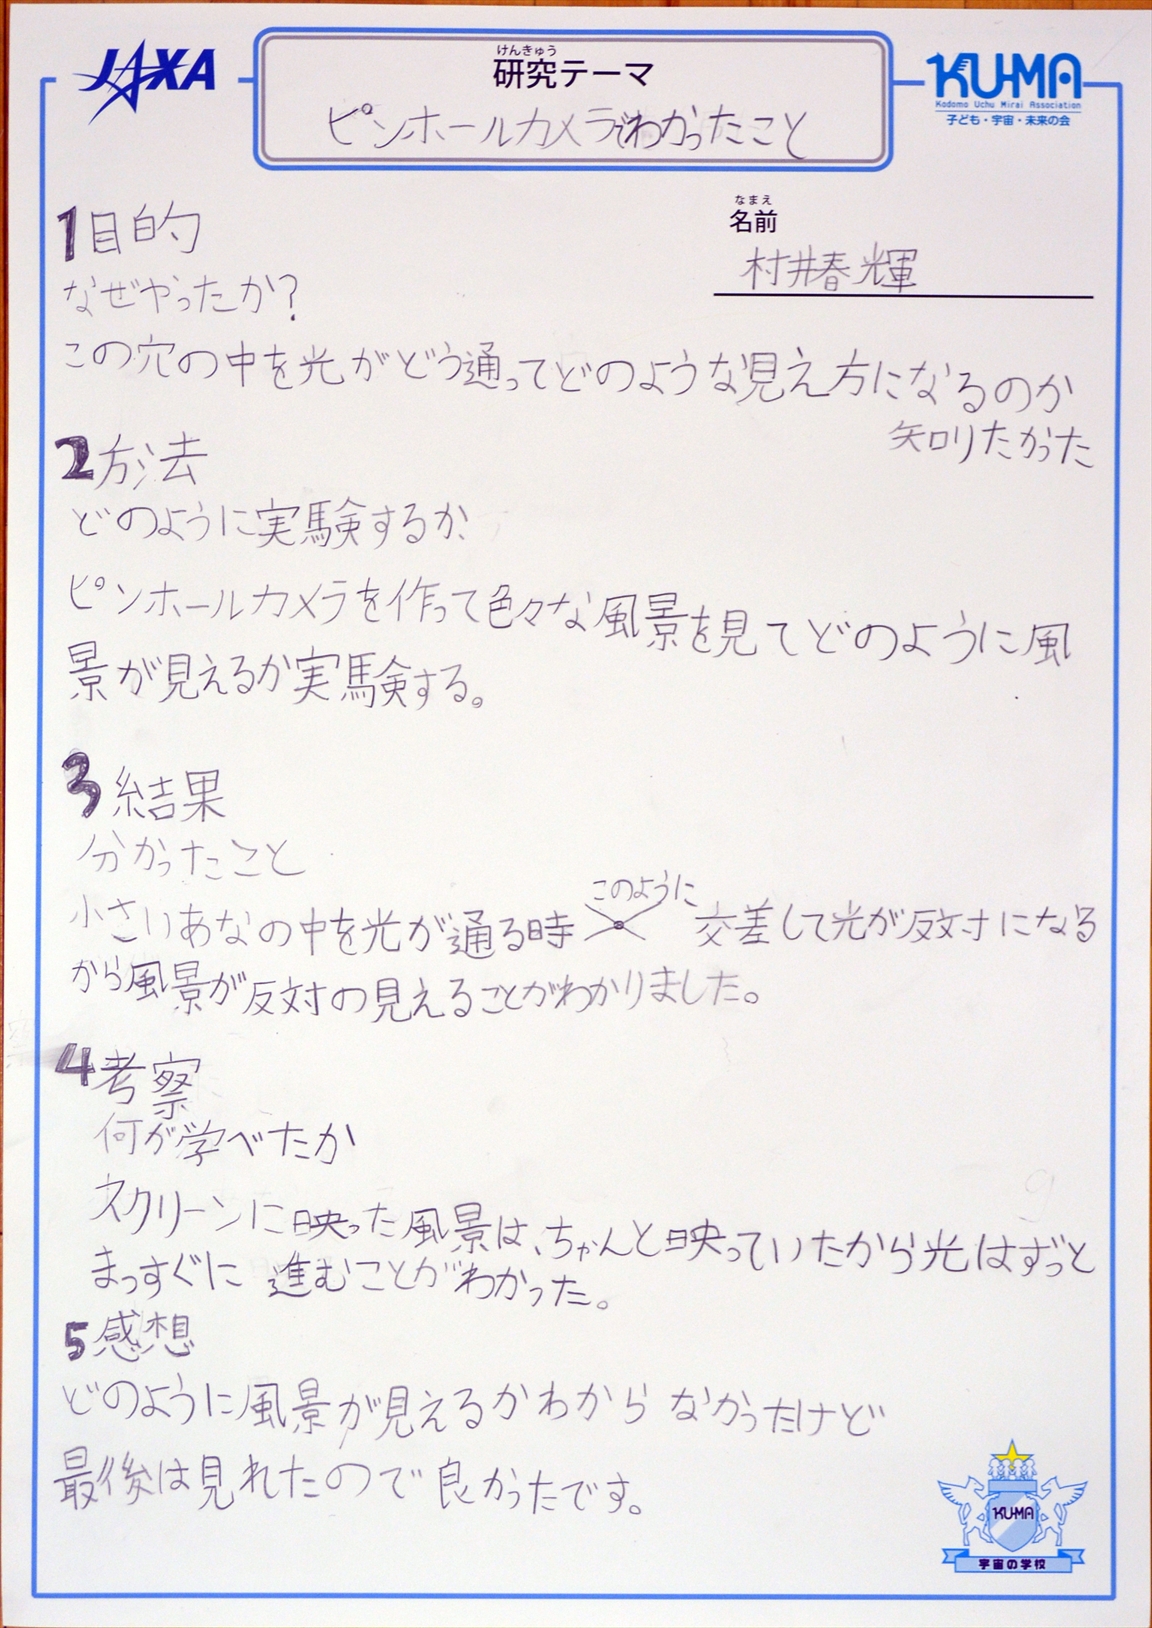 JAXA
けんきゅう
研究テーマ
ピンホールカメラでわかったこと
KU-MA
Kodomo Uchu Mirai Association
子ども・宇宙・未来の会
1目的
なまえ
名前
村井春輝
なぜやったか?
この穴の中を光がどう通ってどのような見え方になるのか
知りたかった
2方法
どのように実験するか、
ピンホールカメラを作って色々な風景を見てどのように風
景が見えるか実験する。
3結果
分かったこと
このように
小さいあなの中を光が通る時 交差して光が反対になる
から風景が反対の見えることがわかりました。
4考察
何が学べたか
スクリーンに映った風景は、ちゃんと映っていたから光はずっと
まっすぐに進むことがわかった。
5感想
どのように風景が見えるかわからなかったけど
最後は見れたので良かったです。
KU-MA
宇宙の学校